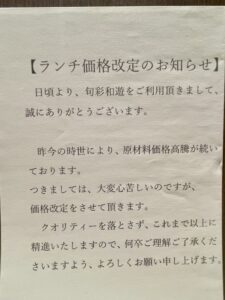 【ランチ価格改定のお知らせ】
日頃より、旬彩和遊をご利用頂きまして、
誠にありがとうございます。
昨今の時世により、原材料価格高騰が続い
ております。
つきましては、大変心苦しいのですが、
価格改定をさせて頂きます。
クオリティーを落とさず、これまで以上に
精進いたしますので、何卒ご理解ご了承くだ
さいますよう、よろしくお願い申し上げます。